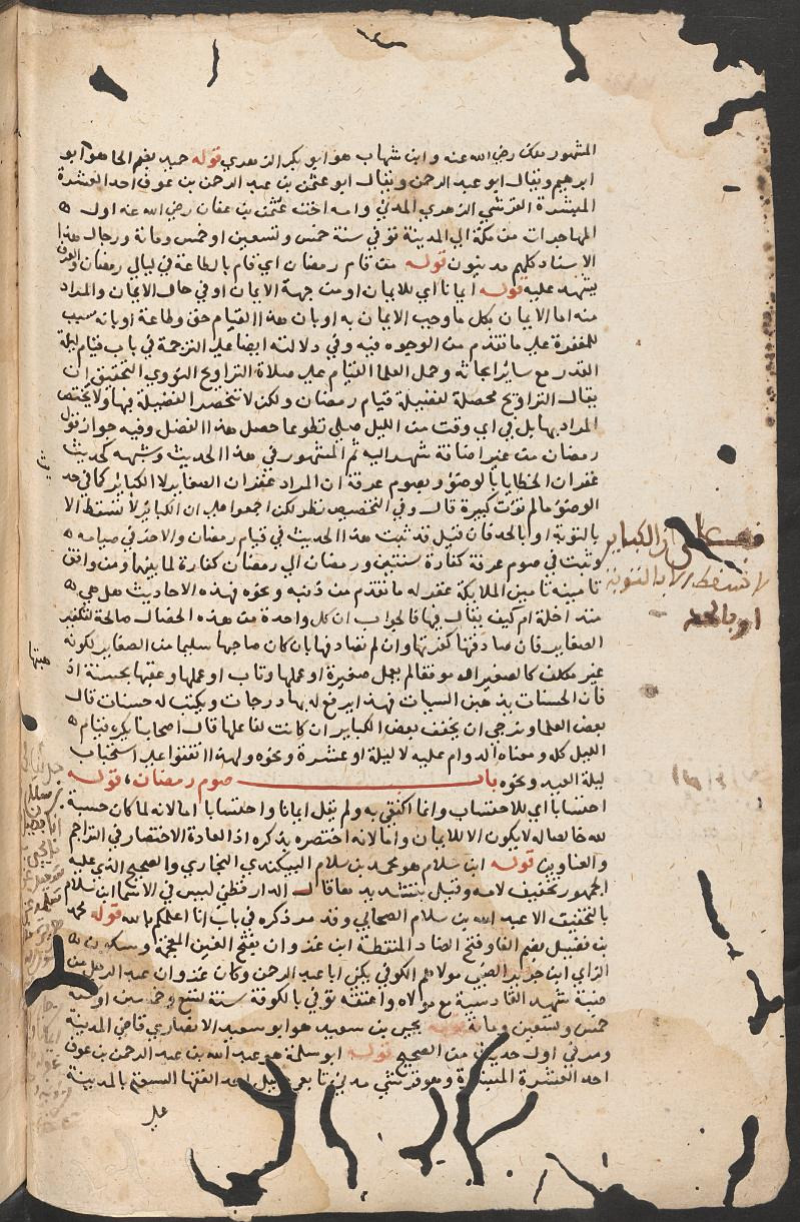 المشهور ملكن رضي الله عنه وابن شهاب هو ابو بكر الزهري قوله حميد بضم الحا هو ابو
ابرهيم ويقال ابو عبد الرحمن ويقال ابو عثمن بن عبد الرحمن بن عوف احد العشرة
المبشرة القرشي الزهري المدني وامه اخت عثمن بن عفان رضي الله عنه اول
المهاجرات من مكة الي المدينة توفي سنة خمس وتسعين او خمس ومائة ورجال هذا
الاسناد كلهم مدنيون قوله من قام رمضان اي قام بالطاعة في ليالي رمضان والعرف
يشهد عليه قوله ايمانا اي للايمان او من جهة الايمان او في حال الايمان والمراد
منه اما الايمان بكل ما وجب الايمان به او بان هذا القيام حق وطاعة او بانه سبب
للمغفرة علي ما تقدم من الوجوه فيه وفي دلالته ايضا علي الترجمة في باب قيام ليلة
القدر مع سائر ابحاثه وحمل العلما القيام علي صلاة التراويح النووي التحقيق ان
يقال التراويح محصلة لفضيلة قيام رمضان ولكن لا تنحصر الفضيلة فيها ولا يختص
المراد بها بل في اي وقت من الليل صلي تطوعا حصل هذا الفضل وفيه جواز قول
رمضان من غير اضافة شهر اليه ثم المشهور في هذا الحديث وشبهه كحديث
غفران الخطايا بالوضوء وبصوم عرفة ان المراد غفران الصغاير لا الكباير كما في حديث
الوضوء ما لم تؤت كبيرة قال وفي التخصيص نظر لكن اجمعوا علي ان الكباير لا تسقط الا
بالتوبة او بالحد فان قيل قد ثبت هذا الحديث في قيام رمضان والاخر في صيامه
وثبت في صوم عرفة كفارة سنتين ورمضان الي رمضان كفارة لما بينهما ومن وافق
تامينه تامين الملايكة غفر له ما تقدم من ذنبه ونحوه فهذه الاحاديث هل هي
متداخلة ام كيف يقال فيها فالجواب ان كل واحدة من هذه الخصال صالحة لتكفير
الصغاير فان صادفتها كفرتها وان لم تصادفها بان كان صاحبها سليما من الصغاير لكونه
غير مكلف كالصغير او موفقا لم يعمل صغيرة او عملها وتاب او عملها وعقبها بحسنة اذ
فان الحسنات يذهبن السيات فهذا يرفع له بها درجات ويكتب له حسنات قال
بعض العلما ونرجي ان يخفف بعض الكباير ان كانت لفاعلها قال اصحابنا يكره قيام
الليل كله ومعناه الدوام عليه لا ليلة او عشرة ونحوه ولهذا اتفقوا علي استحباب
ليلة العيد ونحوه باب صوم رمضان، قوله
احتسابا اي للاحتساب وانما اكتفي به ولم يقل ايمانا واحتسابا اما لانه لما كان حسبة
لله خالصا له لا يكون الا للايمان واما لانه اختصره بذكره اذ العادة الاختصار في التراجم
والعناوين قوله ابن سلام هو محمد بن سلام البيكندي البخاري والصحيح الذي عليه
الجمهور تخفيف لامه وقيل بتشديدها قال الدارقطني ليس في الاسما ابن سلام
بالتخفيف الا عبد الله بن سلام الصحابي وقد مر ذكره في باب انا اعلمكم بالله قوله محمد
بن فضيل بضم الفا وفتح الضاد المنقطة ابن غزوان بفتح الغين المعجمة وسكون
الزاي ابن جرير الضبي مولاهم الكوفي يكني ابا عبد الرحمن وكان غزوان عبد الرجل من
ضبة شهد القادسية مع مولاه واعتقه توفي بالكوفة سنة تسع وخمسين او سنة
خمس وتسعين ومائة قوله يحيي بن سعيد هو ابو سعيد الانصاري قاضي المدينة
ومر في اول حديث من الصحيح قوله ابو سلمة هو عبد الله بن عبد الرحمن بن عوف
احد العشرة المبشرة وهو قرشي مدني تابعي قيل احد الفقها السبعة بالمدينة
علي
علي ان الكباير
لا تسقط الا بالتوبة
او بالحد